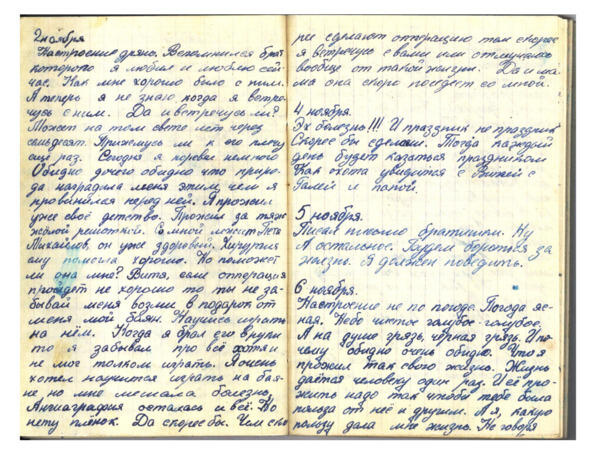 2 ноября
Настроение дряно. Вспомнился брат
которого я любил и люблю сей
час. Как мне хорошо было с ним.
А теперь я не знаю, когда я встре-
чусь с ним. Да и встречусь ли?
Может на том свете лет через
семьдесят. Прижмусь ли к его плечу
ещё раз. Сегодня я поревел немного
Обидно дочего обидно что приро-
да наградила меня этим, чем я
провинился перед ней. Я прожил
уже своё детство. Прожил за тяж-
жёлой решоткой. Со мной лежит Петя
Михайлов, он уже здоровый. Хирургия
ему помогла хорошо. Но поможет
ли она мне? Витя, если отперация
пройдет не хорошо то ты не за-
бывай меня возми в подарок от
меня мой баян. Научись играть
на нём. Когда я брал его в руки
то я забывал про всё хотя и
не мог толком играть. Я очень
хотел научится играть на бая-
не но мне мешала болезнь
Ангиография осталась и всё. Но
нету плёнок. Да скорее бы. Чем ско
рее сделают отперацию тем скорее
я встречусь с вами или отмучаюсь
вообще от такой жизни. Да и ма-
ма она скоро поедет со мной.
4 ноября.
Эх болезнь!!! И праздник не праздник
Скорее бы сделали. Тогда каждый
день будет казаться праздником
Как охота увидится с Витей с
Галей и папой.
5 ноября.
Писал письмо братишкам. Ну
А остальное. Будем бороться за
жизнь. Я должен победить.
6 ноября.
Настроение не по погоде. Погода яс-
ная. Небо чистое голубое-голубое,
А на душе грязь, чёрная грязь. И по-
чему обидно очень обидно. Что я
прожил так свою жизнь. Жизнь
даётся человеку один раз. И её про-
жить надо так чтобы тебе была
польза от неё и другим. А я, какую
пользу дала мне жизнь. Не говоря